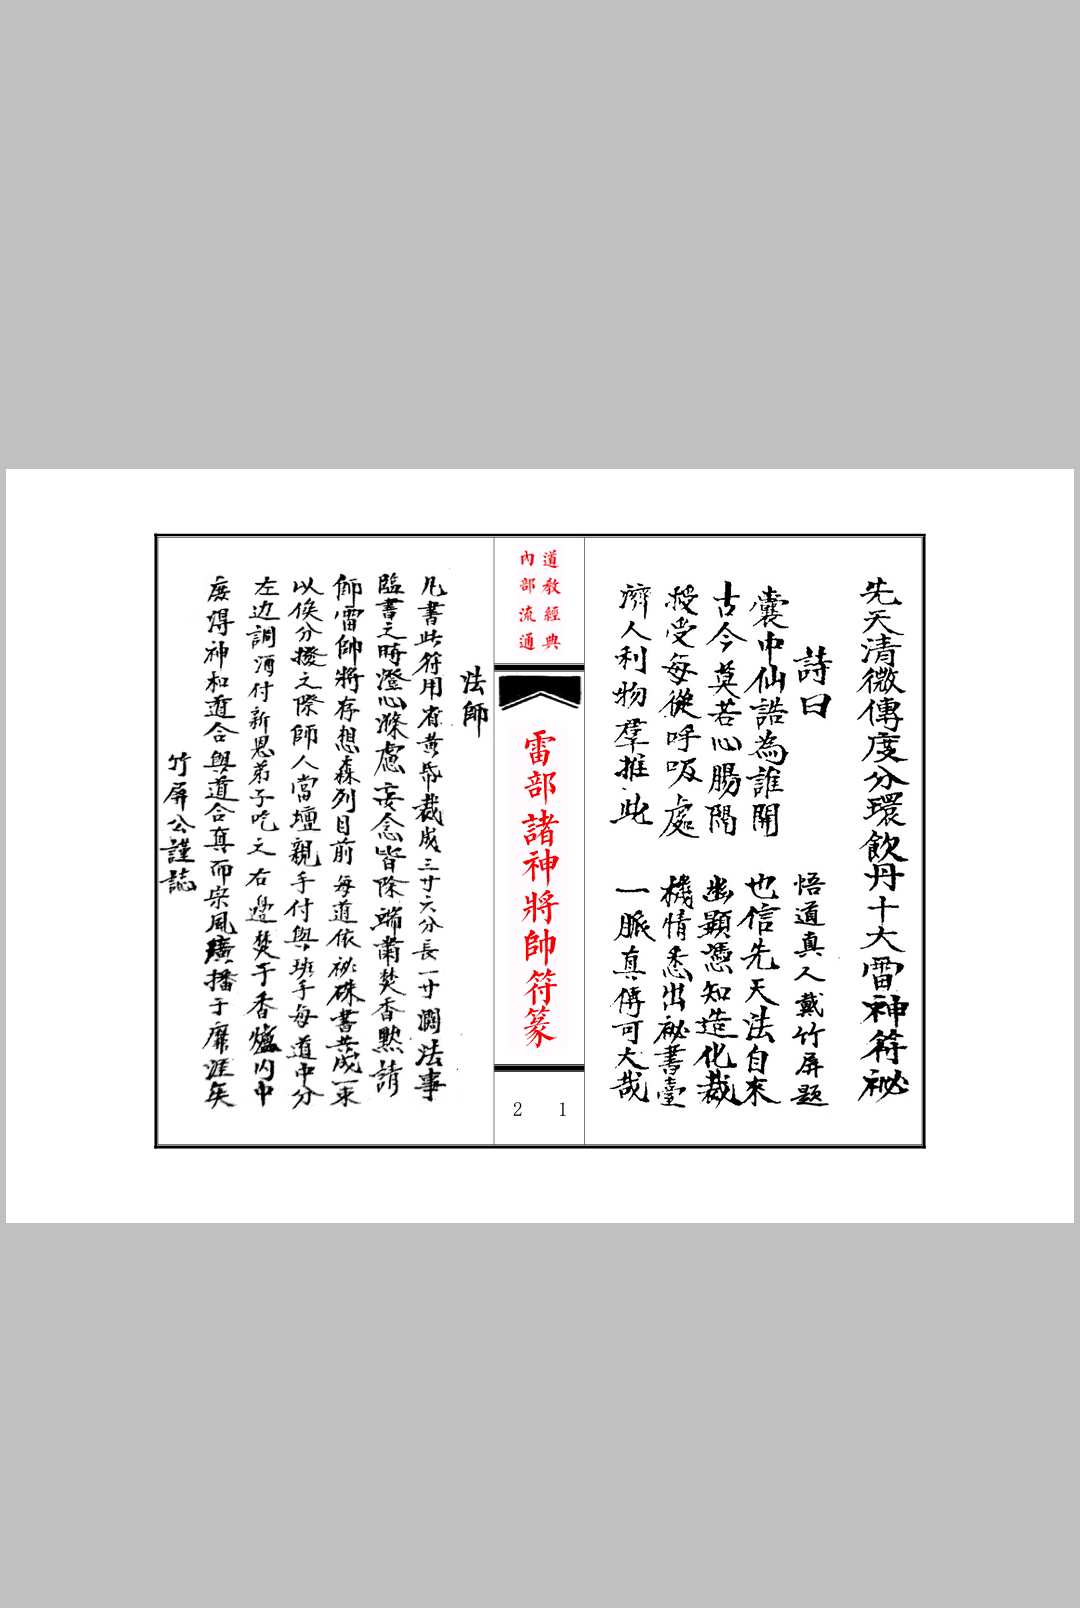 先天清微傳度分環飲丹十大雷神符祕
詩曰
悟道真人戴竹屏題
囊中仙誥為誰開 也信先天法自來
古今莫若心腸闊 幽顯憑知造化裁
授受每從呼吸處 機情悉出祕書臺
濟人利物羣推此 一脈真傳可大哉
道教經典
內部流通
雷部諸神將帥符篆
2 1
法師
凡書此符用省黃帋裁成三寸六分長一寸濶法事
臨書之時澄心滌慮妄念皆除端肅焚香默請
師雷帥將存想森列目前每道依祕硃書共成一束
以俟分撥之際師人當壇親手付與班手每道中分
左边調酒付新恩弟子吃之右邊焚于香爐內中
庶得神和道合與道合真而宗風廣播于靡涯矣
竹屏公謹誌